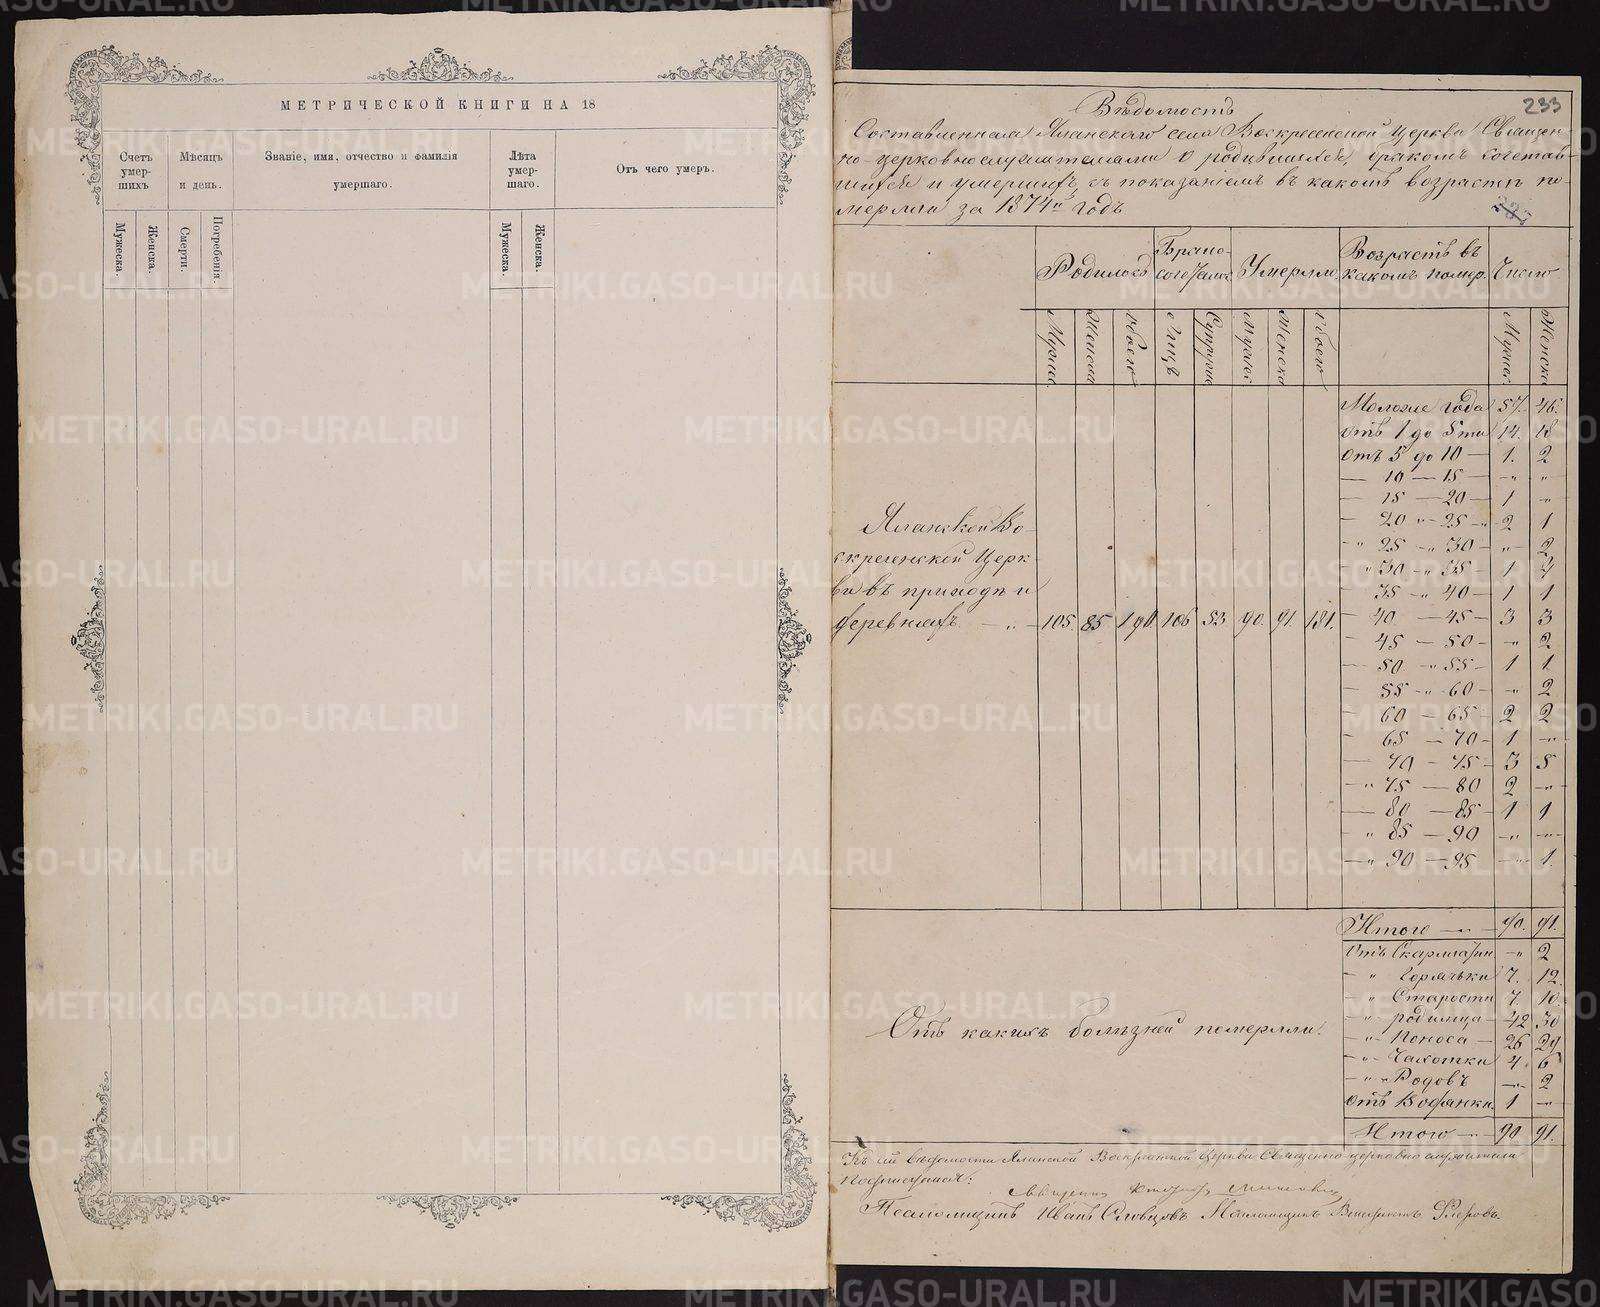 МЕТРИЧЕСКОЙ КНИГИ НА 18
Счетъ умер-шихъ
Мѣсяцъ и день.
Званіе, имя, отчество и фамилія умершаго.
Лѣта умер-шаго.
Отъ чего умеръ.
Мужеска.
Женска.
Смерти.
Погребенія.
Мужеска.
Женска.
233
Вѣдомость
Составленная Яланскаго села Воскресенской Церкви Священ-
но-церковнослужителями о родившихся, бракомъ сочетав-
шихся и умершихъ, съ показаніемъ въ какомъ возрастѣ по-
мерли за 1874й годъ
Родилось
Брако-
сочетались
Умерли
Возрастъ въ
какомъ помер.
Число
Мужеска
Женска
Обоего
Лицъ
Супруж
Мужес
Женска
Обоего
Мужес
Женска
Яланской Во-
скресенской Церк-
ви въ приходѣ и
деревняхъ — „ — 105. 85 190. 106 53 90. 91. 181.
Моложе года 57. 46.
Отъ 1 до 5ти 14. 18
Отъ 5 до 10 — 1. 2
— 10 — 15 — „ „
— 15 — 20 — 1 „
— 20 „ — 25 — „ 2 1
„ 25 — „ 30 — „ 2
„ 30 — 35 — 1 4
35 — „ 40 — 1 1
— 40 — 45 — 3 3
— 45 — 50 — „ 2
— 50 — „ 55 — 1 1.
— 55 — „ 60 — „ 2
— 60 — 65 — 2 2
— 65 — 70 — 1 „
— 70 — 75 — 3 5
— „ 75 — 80 2 „
— 80 — 85 — 1 1
„ 85 — 90 „ „
— „ 90 — 95 — „ 1.
Итого — „ — 90. 91.
Отъ Скарлатин „ 2
— „ Горячки 7. 12.
— „ Старости 7. 10.
— „ родимца — 42 30
— „ Поноса — 26 29
— „ Чахотки 4. 6
— „ Родовъ — „ 2
Отъ Водянки. 1 — „
Итого — „ 90. 91.
Отъ какихъ болѣзней померли.
Къ сей вѣдомости Яланской Воскресенской Церкви Священно-церковно служители
подписуемся:
Псаломщикъ Иванъ Словцовъ Псаломщикъ Флеровъ.
METRIKI.GASO-URAL.RU